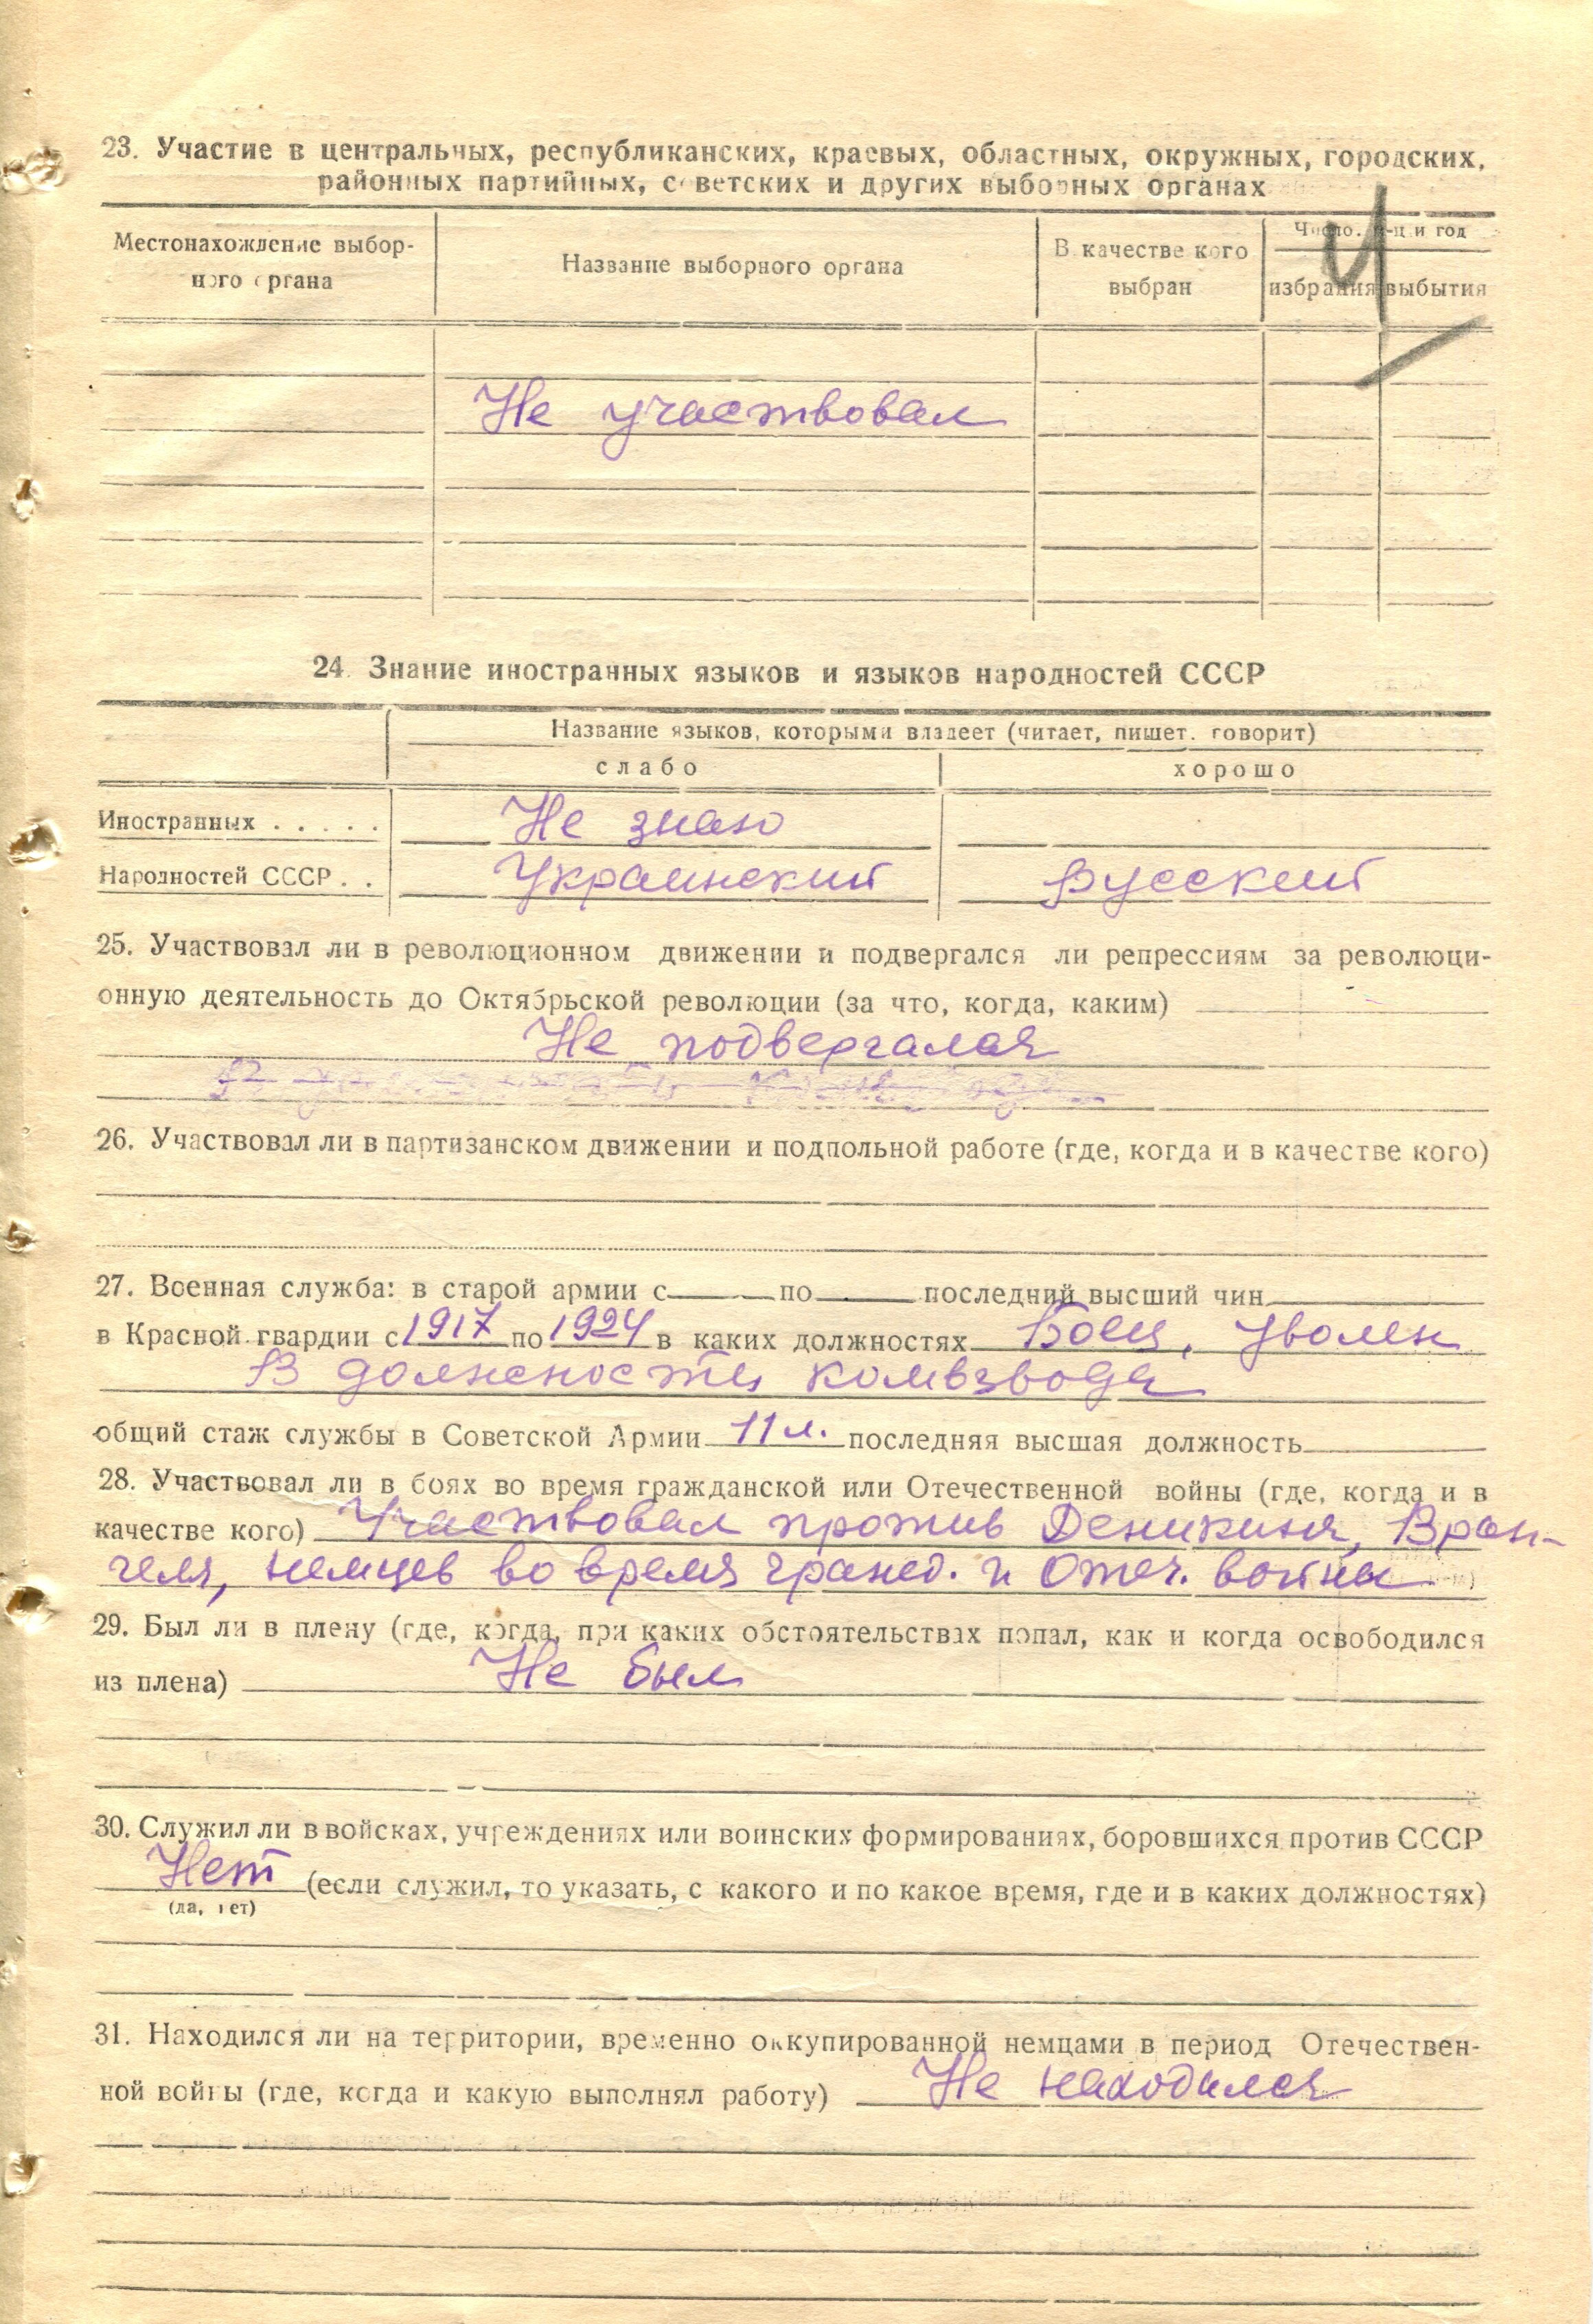 23. Участие в центральных, республиканских, краевых, областных, окружных, городских,
районных партийных, советских и других выборных органах
4
Местонахождение выбор-
ного органа
Название выборного органа
В качестве кого
выбран
Число, м-ц и год
избрания
выбытия
Не участвовал
24. Знание иностранных языков и языков народностей СССР
Название языков, которыми владеет (читает, пишет, говорит)
слабо
хорошо
Иностранных . . . . .
Не знаю
Народностей СССР . .
Украинский
Русский
25. Участвовал ли в революционном движении и подвергался ли репрессиям за революци-
онную деятельность до Октябрьской революции (за что, когда, каким)
Не подвергался
26. Участвовал ли в партизанском движении и подпольной работе (где, когда и в качестве кого)
27. Военная служба: в старой армии с по последний высший чин
в Красной гвардии с 1917 по 1924 в каких должностях Боец, Уволен
В должности комвзвода
общий стаж службы в Советской Армии 11 л. последняя высшая должность
28. Участвовал ли в боях во время гражданской или Отечественной войны (где, когда и в
качестве кого) Участвовал против Деникина, Вран-
геля, немцев во время гражд. и Отеч. войны
29. Был ли в плену (где, когда, при каких обстоятельствах попал, как и когда освободился
из плена) Не был
30. Служил ли в войсках, учреждениях или воинских формированиях, боровшихся против СССР
Нет (если служил, то указать, с какого и по какое время, где и в каких должностях)
(да, нет)
31. Находился ли на территории, временно оккупированной немцами в период Отечествен-
ной войны (где, когда и какую выполнял работу) Не находился